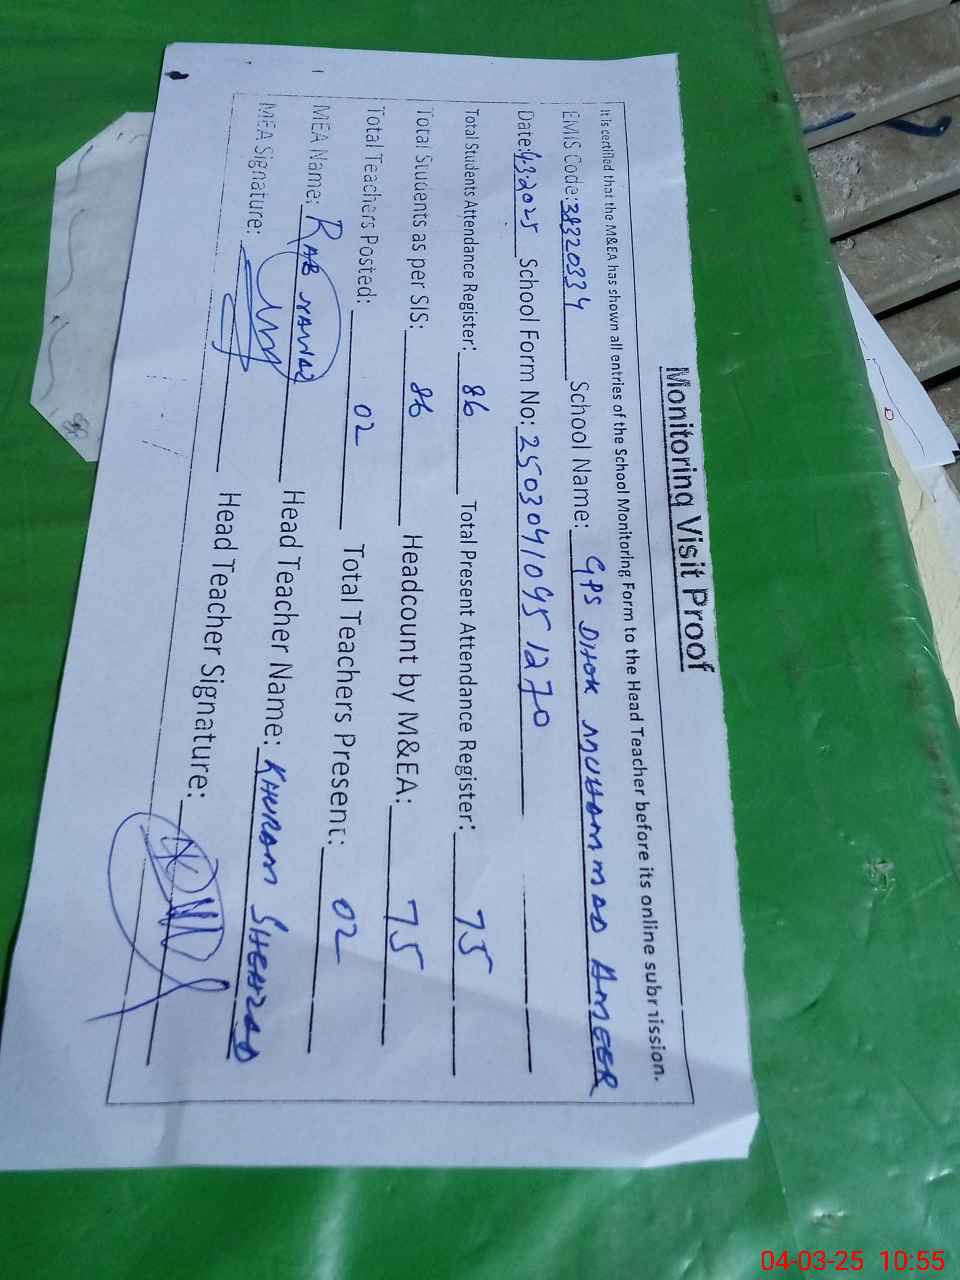 Monitoring Visit Proof
It is certified that the M&EA has shown all entries of the School Monitoring Form to the Head Teacher before its online submission.
EMIS Code: 38320334 School Name: GPS DHOK MUHAMMAD AMEER
Date: 4-3-2025 School Form No: 25030410951270
Total Students Attendance Register: 86 Total Present Attendance Register: 75
Total Students as per SIS: 86 Headcount by M&EA: 75
Total Teachers Posted: 02 Total Teachers Present: 02
MEA Name: RAB NAWAZ Head Teacher Name: KHURAM SHEHZAD
MEA Signature: Head Teacher Signature:
04-03-25 10:55